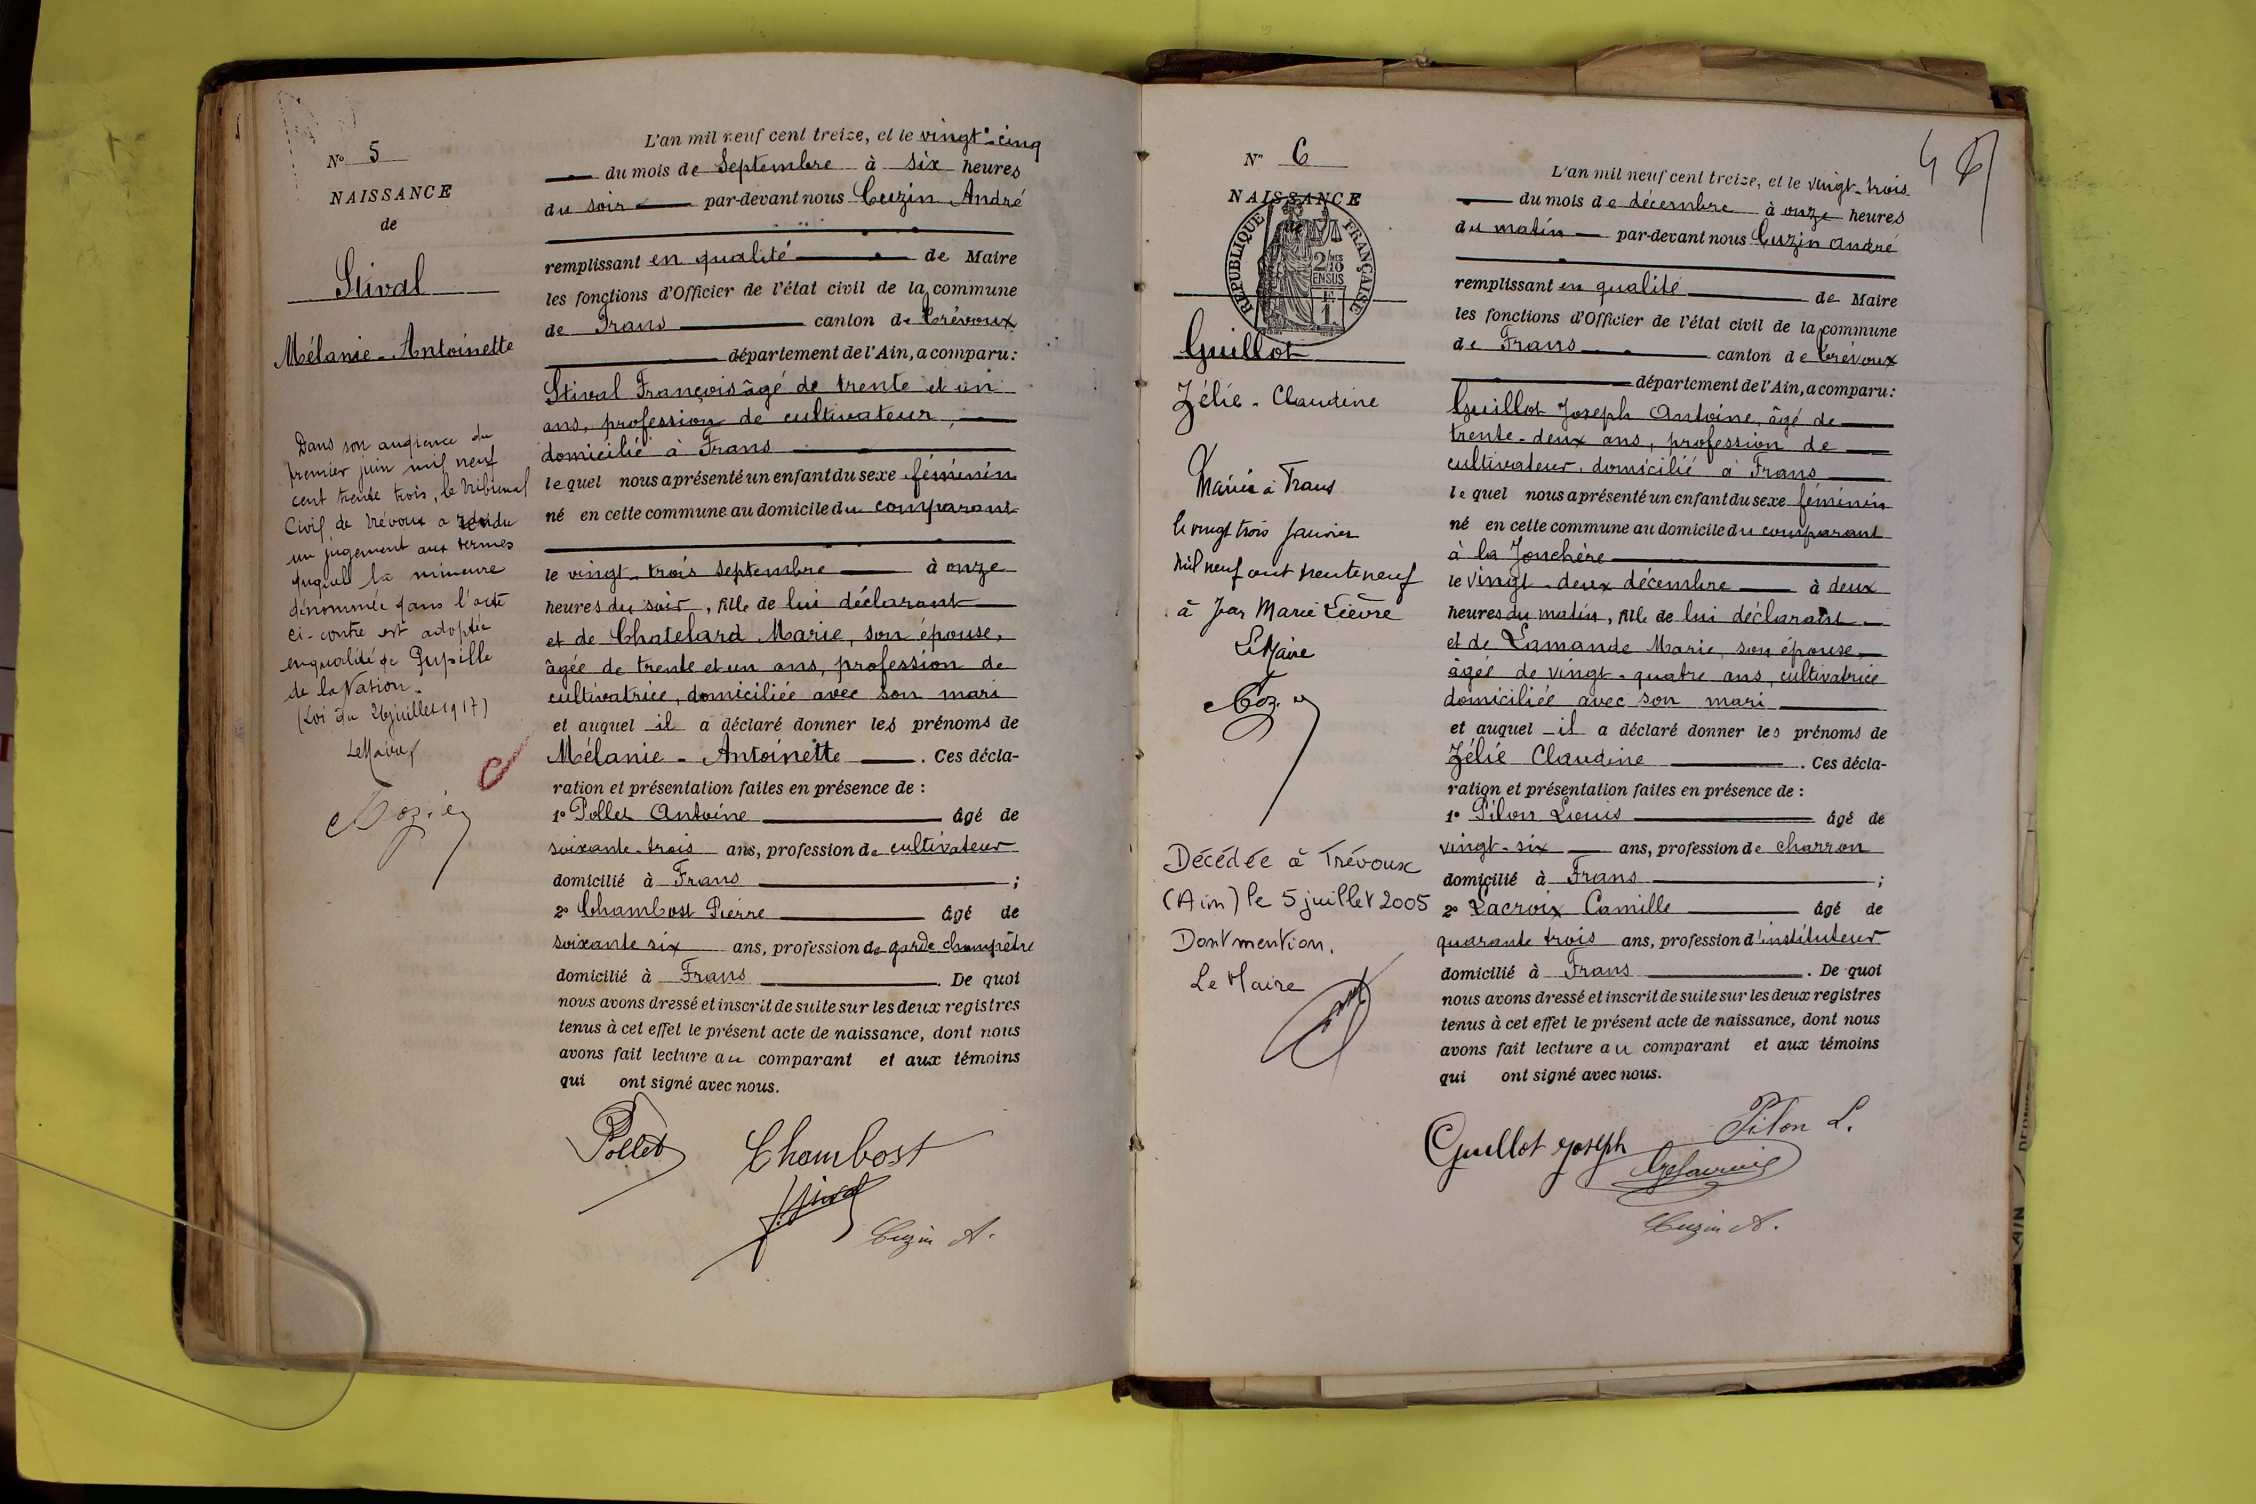 N° 5
NAISSANCE
de
Stival
Mélanie-Antoinette
Dans son audience du
premier juin mil neuf
cent trente trois, le tribunal
Civil de Trévoux a rendu
un jugement aux termes
duquel la mineure
dénommée dans l'acte
ci-contre est adoptée
en qualité de Pupille
de la Nation.
(Loi du 26 juillet 1917)
Le Maire
L'an mil neuf cent treize, et le vingt-cinq
du mois de Septembre à six heures
du soir par-devant nous Cuzin André
remplissant en qualité de Maire
les fonctions d'Officier de l'état civil de la commune
de Frans canton de Trévoux
département de l'Ain, a comparu:
Stival François âgé de trente et un
ans, profession de cultivateur,
domicilié à Frans
lequel nous a présenté un enfant du sexe féminin
né en cette commune au domicile du comparant
le vingt-trois septembre à onze
heures du soir, fille de lui déclarant
et de Chatelard Marie, son épouse,
âgée de trente et un ans, profession de
cultivatrice, domiciliée avec son mari
et auquel il a déclaré donner les prénoms de
Mélanie-Antoinette. Ces décla-
ration et présentation faites en présence de:
1° Pollet Antoine âgé de
soixante-trois ans, profession de cultivateur
domicilié à Frans;
2° Chambost Pierre âgé de
soixante six ans, profession de garde champêtre
domicilié à Frans. De quoi
nous avons dressé et inscrit de suite sur les deux registres
tenus à cet effet le présent acte de naissance, dont nous
avons fait lecture au comparant et aux témoins
qui ont signé avec nous.
Pollet Chambost
F. Stival Cuzin A.
N° 6
NAISSANCE
RÉPUBLIQUE FRANÇAISE
2/10
EN SUS
F.
1
Guillot
Zélie-Claudine
Mariée à Frans
le vingt trois Janvier
mil neuf cent trente neuf
à Jean Marie Lièvre
Le Maire
Décédée à Trévoux
(Ain) le 5 juillet 2005
Dont mention.
Le Maire
L'an mil neuf cent treize, et le vingt-trois
du mois de décembre à onze heures
du matin par-devant nous Cuzin André
remplissant en qualité de Maire
les fonctions d'Officier de l'état civil de la commune
de Frans canton de Trévoux
département de l'Ain, a comparu:
Guillot Joseph Antoine, âgé de
trente-deux ans, profession de
cultivateur, domicilié à Frans
lequel nous a présenté un enfant du sexe féminin
né en cette commune au domicile du comparant
à la Jonchère
le vingt-deux décembre à deux
heures du matin, fille de lui déclarant
et de Lamande Marie, son épouse,
âgée de vingt-quatre ans, cultivatrice
domiciliée avec son mari
et auquel il a déclaré donner les prénoms de
Zélie Claudine. Ces décla-
ration et présentation faites en présence de:
1° Pilon Louis âgé de
vingt-six ans, profession de charron
domicilié à Frans;
2° Lacroix Camille âgé de
quarante trois ans, profession d'instituteur
domicilié à Frans. De quoi
nous avons dressé et inscrit de suite sur les deux registres
tenus à cet effet le présent acte de naissance, dont nous
avons fait lecture au comparant et aux témoins
qui ont signé avec nous.
Guillot Joseph Pilon L.
Cuzin A.